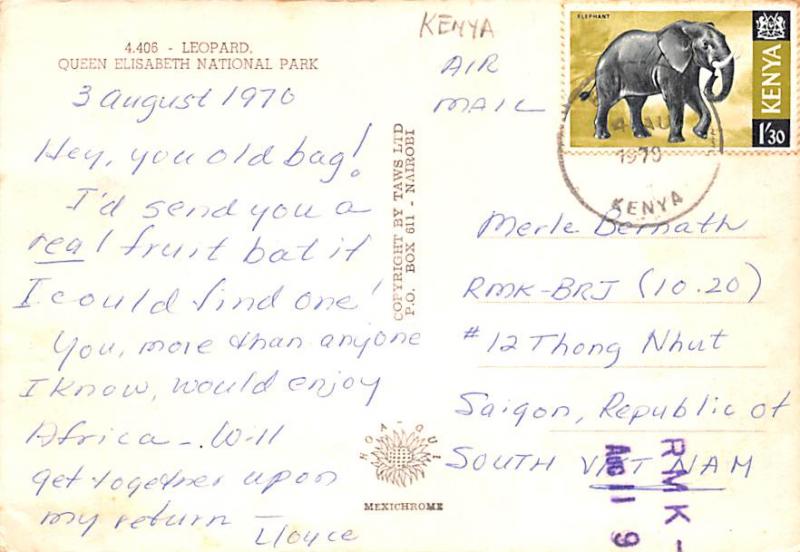 4.406 - LEOPARD.
QUEEN ELISABETH NATIONAL PARK
3 August 1970
Hey, you old bag!
I'd send you a
real fruit bat if
I could find one!
You, more than anyone
I know, would enjoy
Africa - Will
get together upon
my return -
Lloyce
COPYRIGHT BY TAWS LTD
P.O. BOX 611 - NAIROBI
HOA-QUI
MEXICHROME
KENYA
AIR
MAIL
ELEPHANT
KENYA
1'30
4 AU
1970
KENYA
Merle Bernath
RMK-BRJ (10.20)
#12 Thong Nhut
Saigon, Republic of
SOUTH VIET NAM
RMK-
AUG 11 9